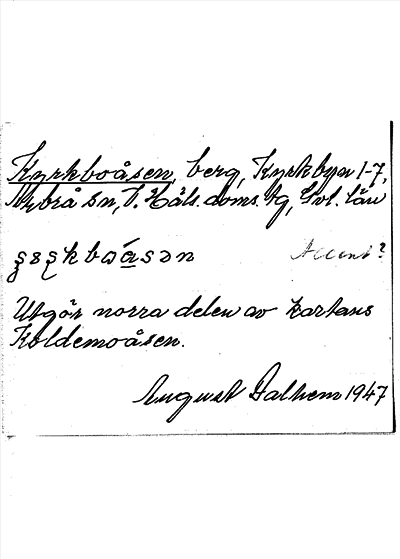 Kyrkboåsen, berg, Kyrkbyn 1-7,
sn, V. Häls. doms. tg, Gvl. län
Accent?
Utgör norra delen av kartans
Koldemoåsen.
August Dalhem 1947